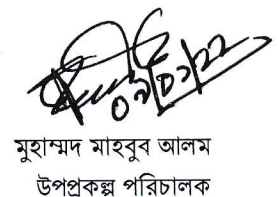 ০৯/০১/২২
মুহাম্মদ মাহবুব আলম
উপপ্রকল্প পরিচালক